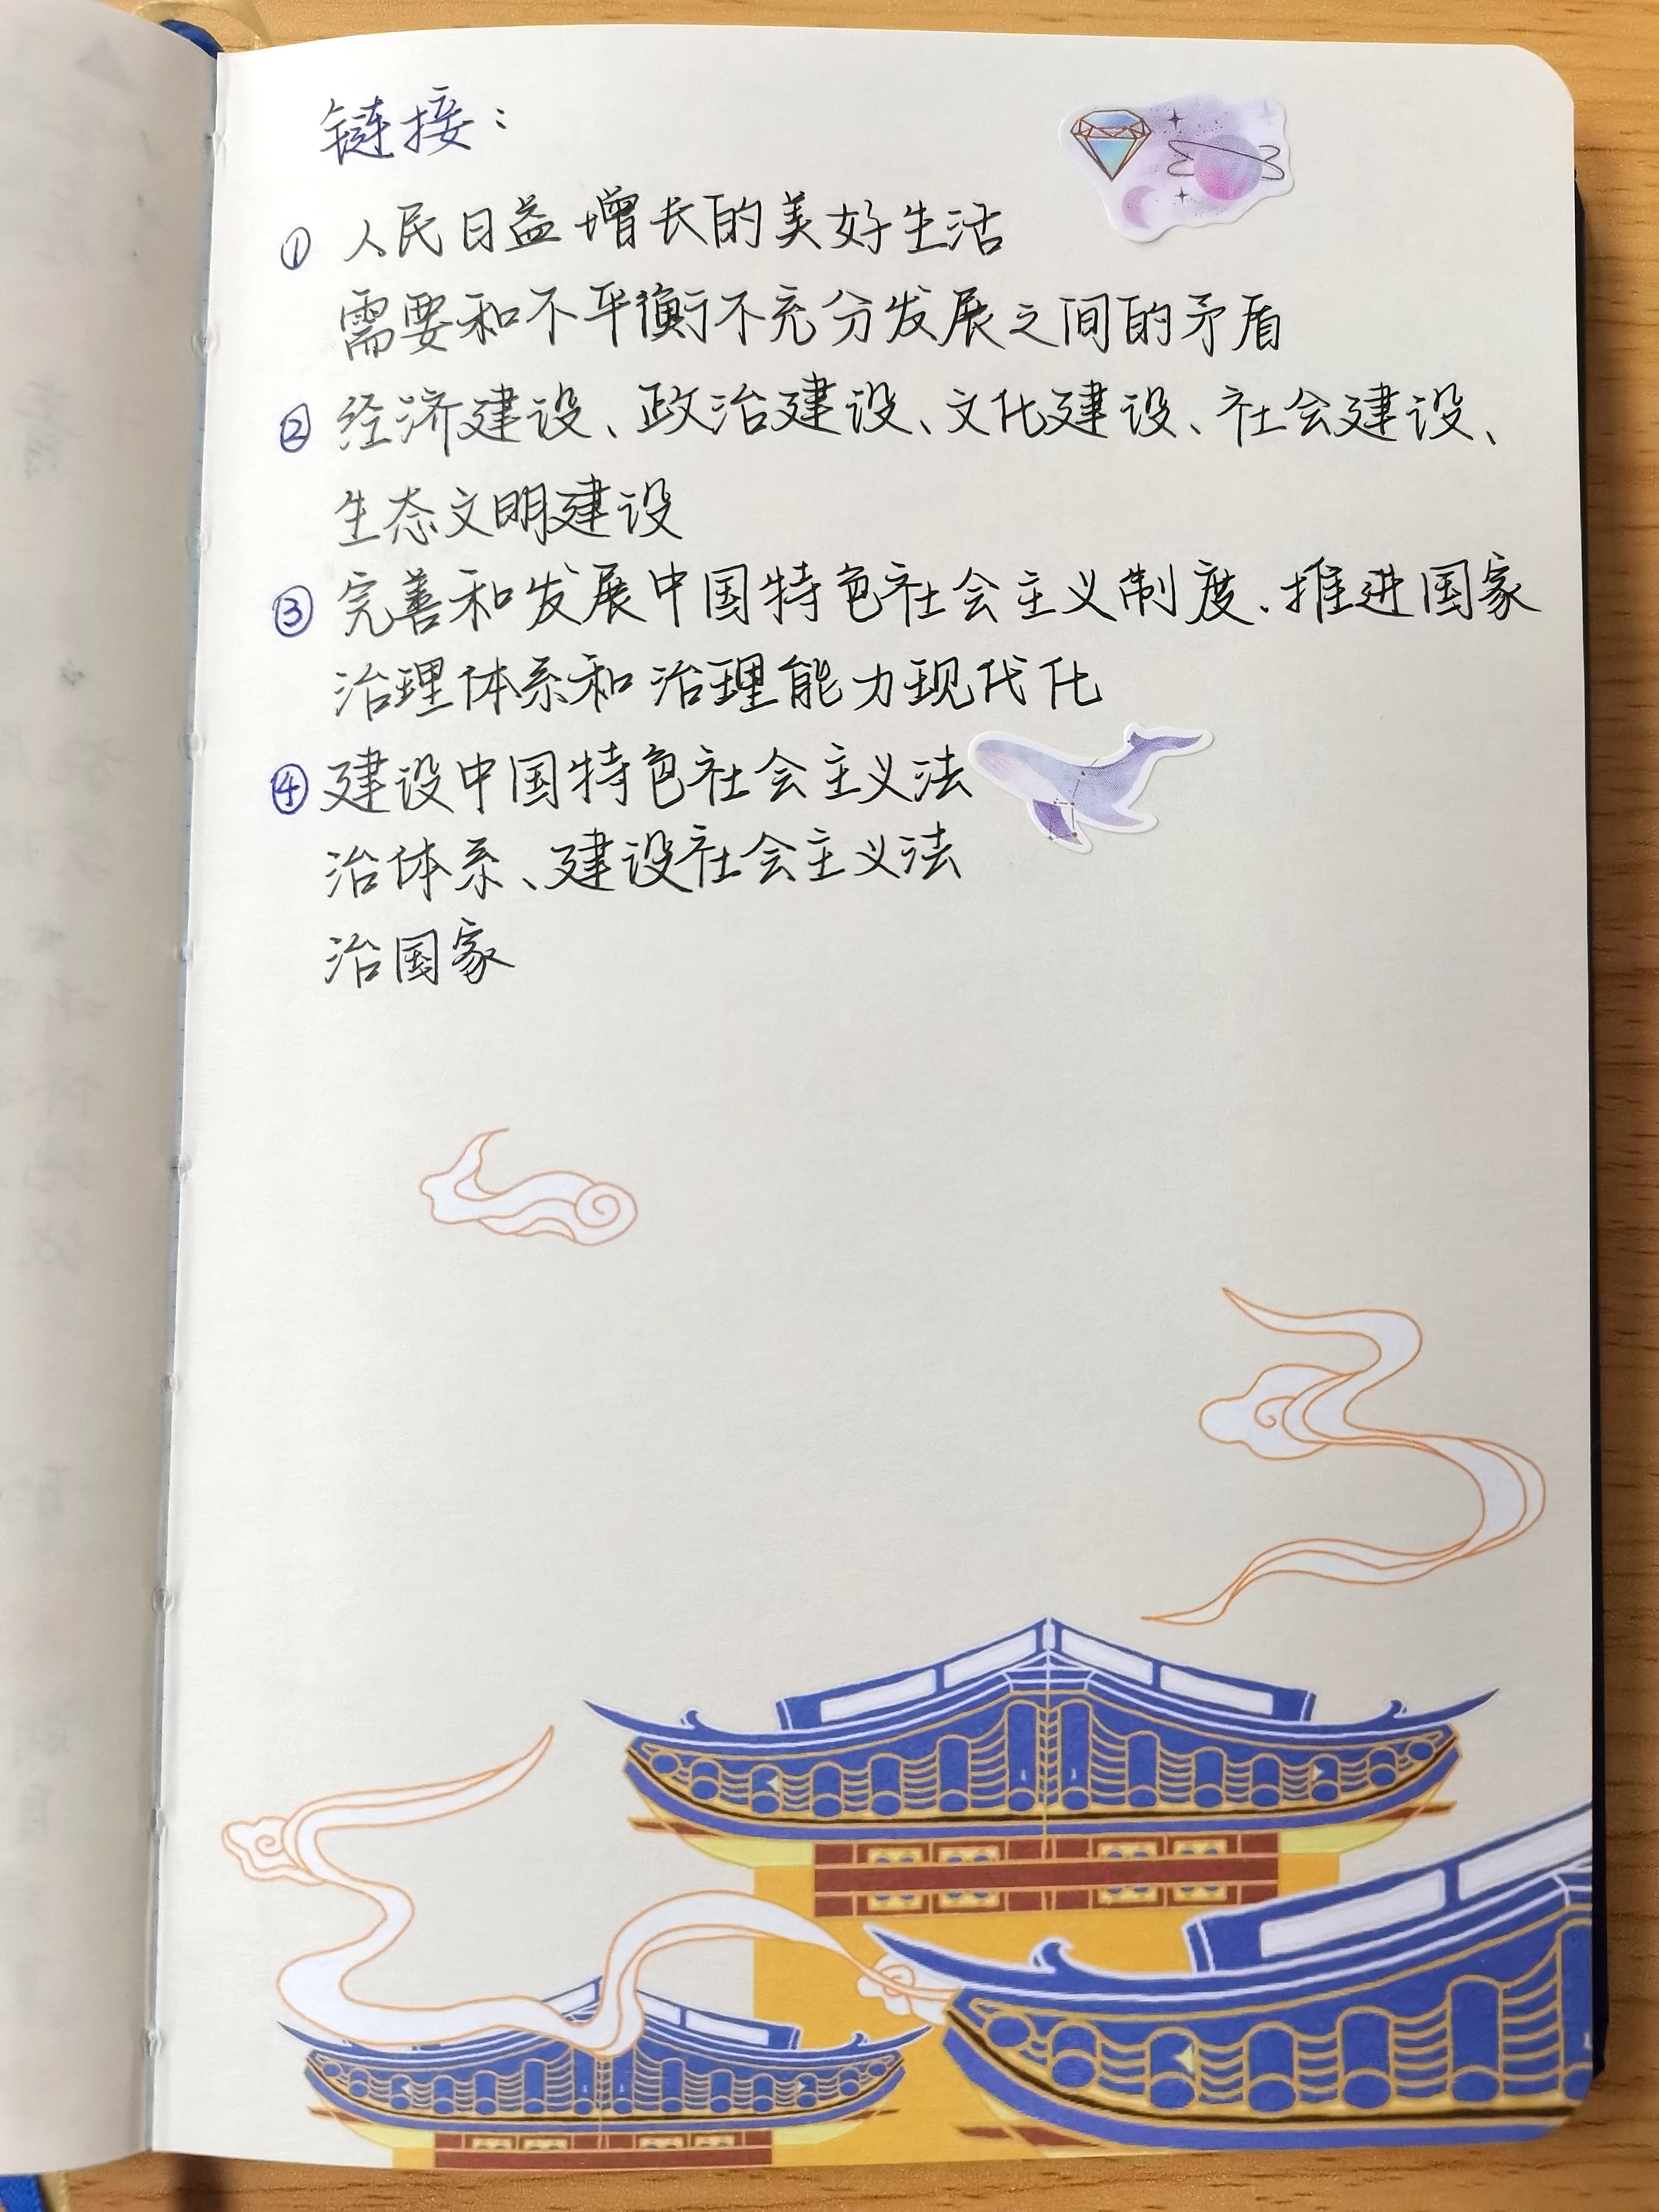 链接：
① 人民日益增长的美好生活
需要和不平衡不充分发展之间的矛盾
② 经济建设、政治建设、文化建设、社会建设、
生态文明建设
③ 完善和发展中国特色社会主义制度、推进国家
治理体系和治理能力现代化
④ 建设中国特色社会主义法
治体系、建设社会主义法
治国家